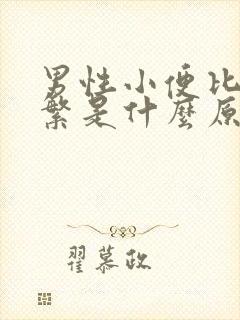 男性小便比
繁是什麼原
翟慕政